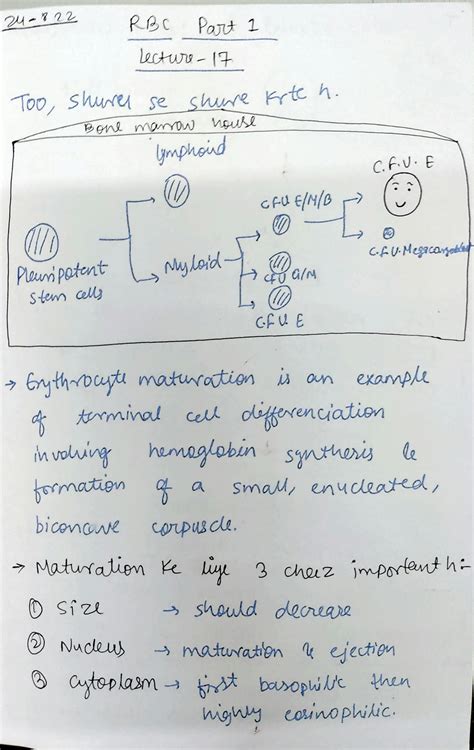 24-8-22
RBC Part 1
Lecture-17
Too, shuru se shure Krte h.
Bone marrow house
lymphoid
C.F.U. E
CFU E/M/B
Pleuripotent
stem cells
Myloid
C.F.U. Megacaryoblast
CFU G/M
C.F.U. E
→ Erythrocyte maturation is an example
of terminal cell differenciation
involving hemoglobin synthesis &
formation of a small, enucleated,
biconcave corpuscle.
→ Maturation Ke liye 3 cheez important h:-
① Size → should decrease
② Nucleus → maturation & ejection
③ Cytoplasm → first basophilic then
highly eosinophilic.